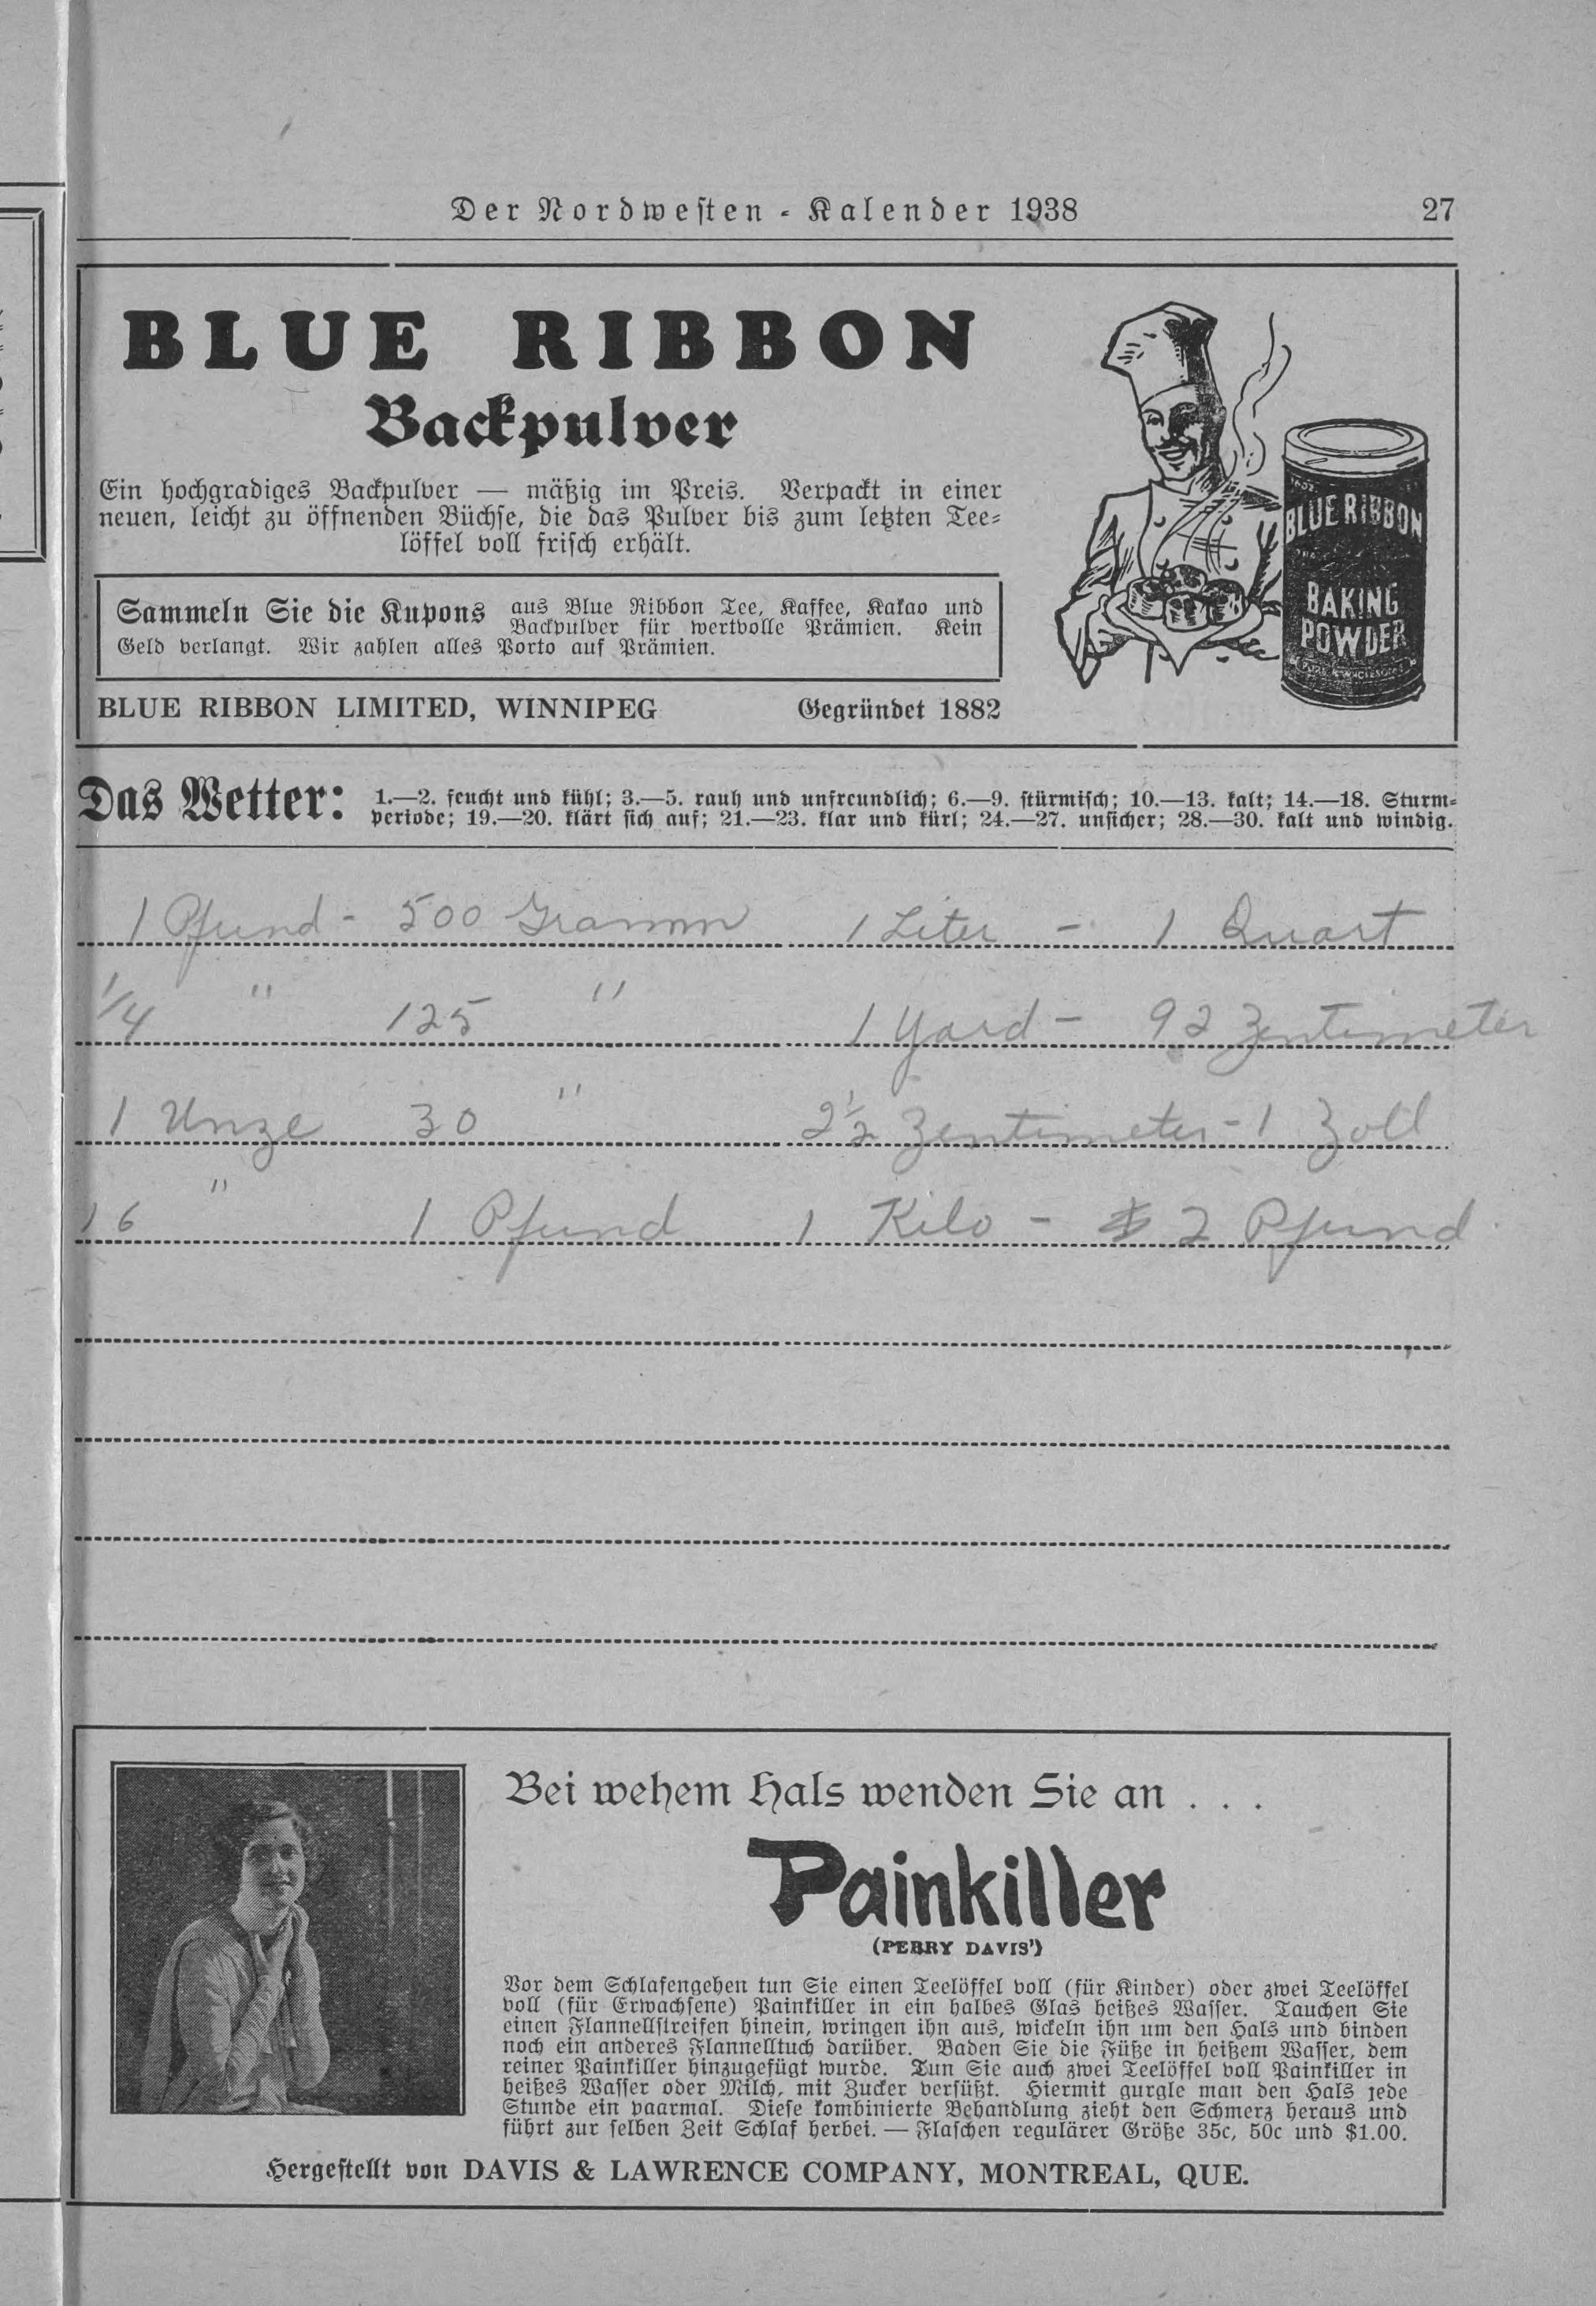 Der Nordwesten - Kalender 1938 27
BLUE RIBBON
Backpulver
Ein hochgradiges Backpulver — mäßig im Preis. Verpackt in einer
neuen, leicht zu öffnenden Büchse, die das Pulver bis zum letzten Tee-
löffel voll frisch erhält.
Sammeln Sie die Kupons aus Blue Ribbon Tee, Kaffee, Kakao und
Backpulver für wertvolle Prämien. Kein
Geld verlangt. Wir zahlen alles Porto auf Prämien.
BLUE RIBBON LIMITED, WINNIPEG Gegründet 1882
BLUE RIBBON
BAKING
POWDER
Das Wetter: 1.—2. feucht und kühl; 3.—5. rauh und unfreundlich; 6.—9. stürmisch; 10.—13. kalt; 14.—18. Sturm-
periode; 19.—20. klärt sich auf; 21.—23. klar und kürl; 24.—27. unsicher; 28.—30. kalt und windig.
1 Pfund - 500 Gramm 1 Liter - 1 Quart
1/4 " 125 " 1 Yard - 92 Zentimeter
1 Unze 30 " 2 1/2 Zentimeter - 1 Zoll
16 " 1 Pfund 1 Kilo - 2 Pfund
Bei wehem Hals wenden Sie an . . .
Painkiller
(PERRY DAVIS')
Vor dem Schlafengehen tun Sie einen Teelöffel voll (für Kinder) oder zwei Teelöffel
voll (für Erwachsene) Painkiller in ein halbes Glas heißes Wasser. Tauchen Sie
einen Flannellstreifen hinein, wringen ihn aus, wickeln ihn um den Hals und binden
noch ein anderes Flannelltuch darüber. Baden Sie die Füße in heißem Wasser, dem
reiner Painkiller hinzugefügt wurde. Tun Sie auch zwei Teelöffel voll Painkiller in
heißes Wasser oder Milch, mit Zucker versüßt. Hiermit gurgle man den Hals jede
Stunde ein paarmal. Diese kombinierte Behandlung zieht den Schmerz heraus und
führt zur selben Zeit Schlaf herbei. — Flaschen regulärer Größe 35c, 50c und $1.00.
Hergestellt von DAVIS & LAWRENCE COMPANY, MONTREAL, QUE.